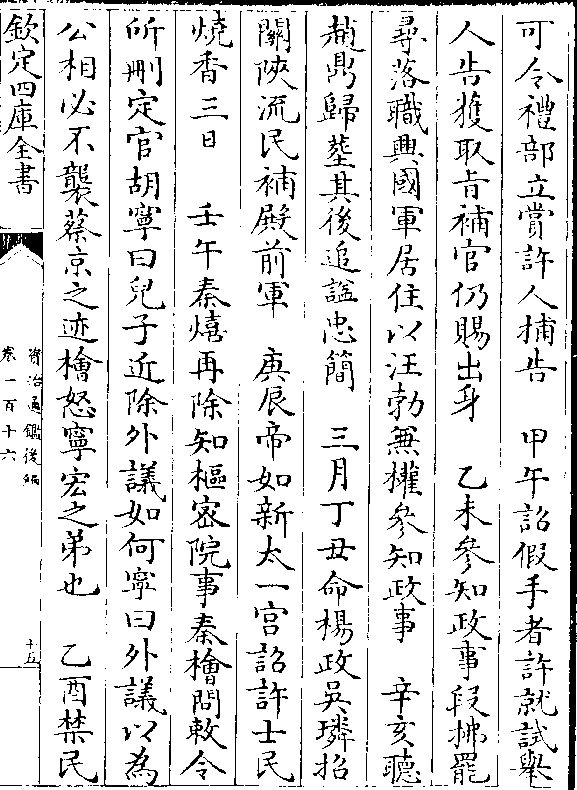 可令禮部立賞許人捕告　甲午詔假手者許就試舉
人告獲取㫖補官仍賜出身　乙未參知政事段拂罷
尋落職興國軍居住以汪勃兼權參知政事　辛亥聽
趙鼎歸塟其後追諡忠簡　三月丁丑命楊政吳璘招
關陜流民補殿前軍　庚辰帝如新太一宫詔許士民
燒香三日　壬午秦熺再除知樞宻院事秦檜問敕令
所刪定官胡寧曰兒子近除外議如何寧曰外議以為
公相必不襲蔡京之迹檜怒寧宏之弟也　乙酉禁民
欽定四庫全書
資治通鑑後編
卷一百十六
十五